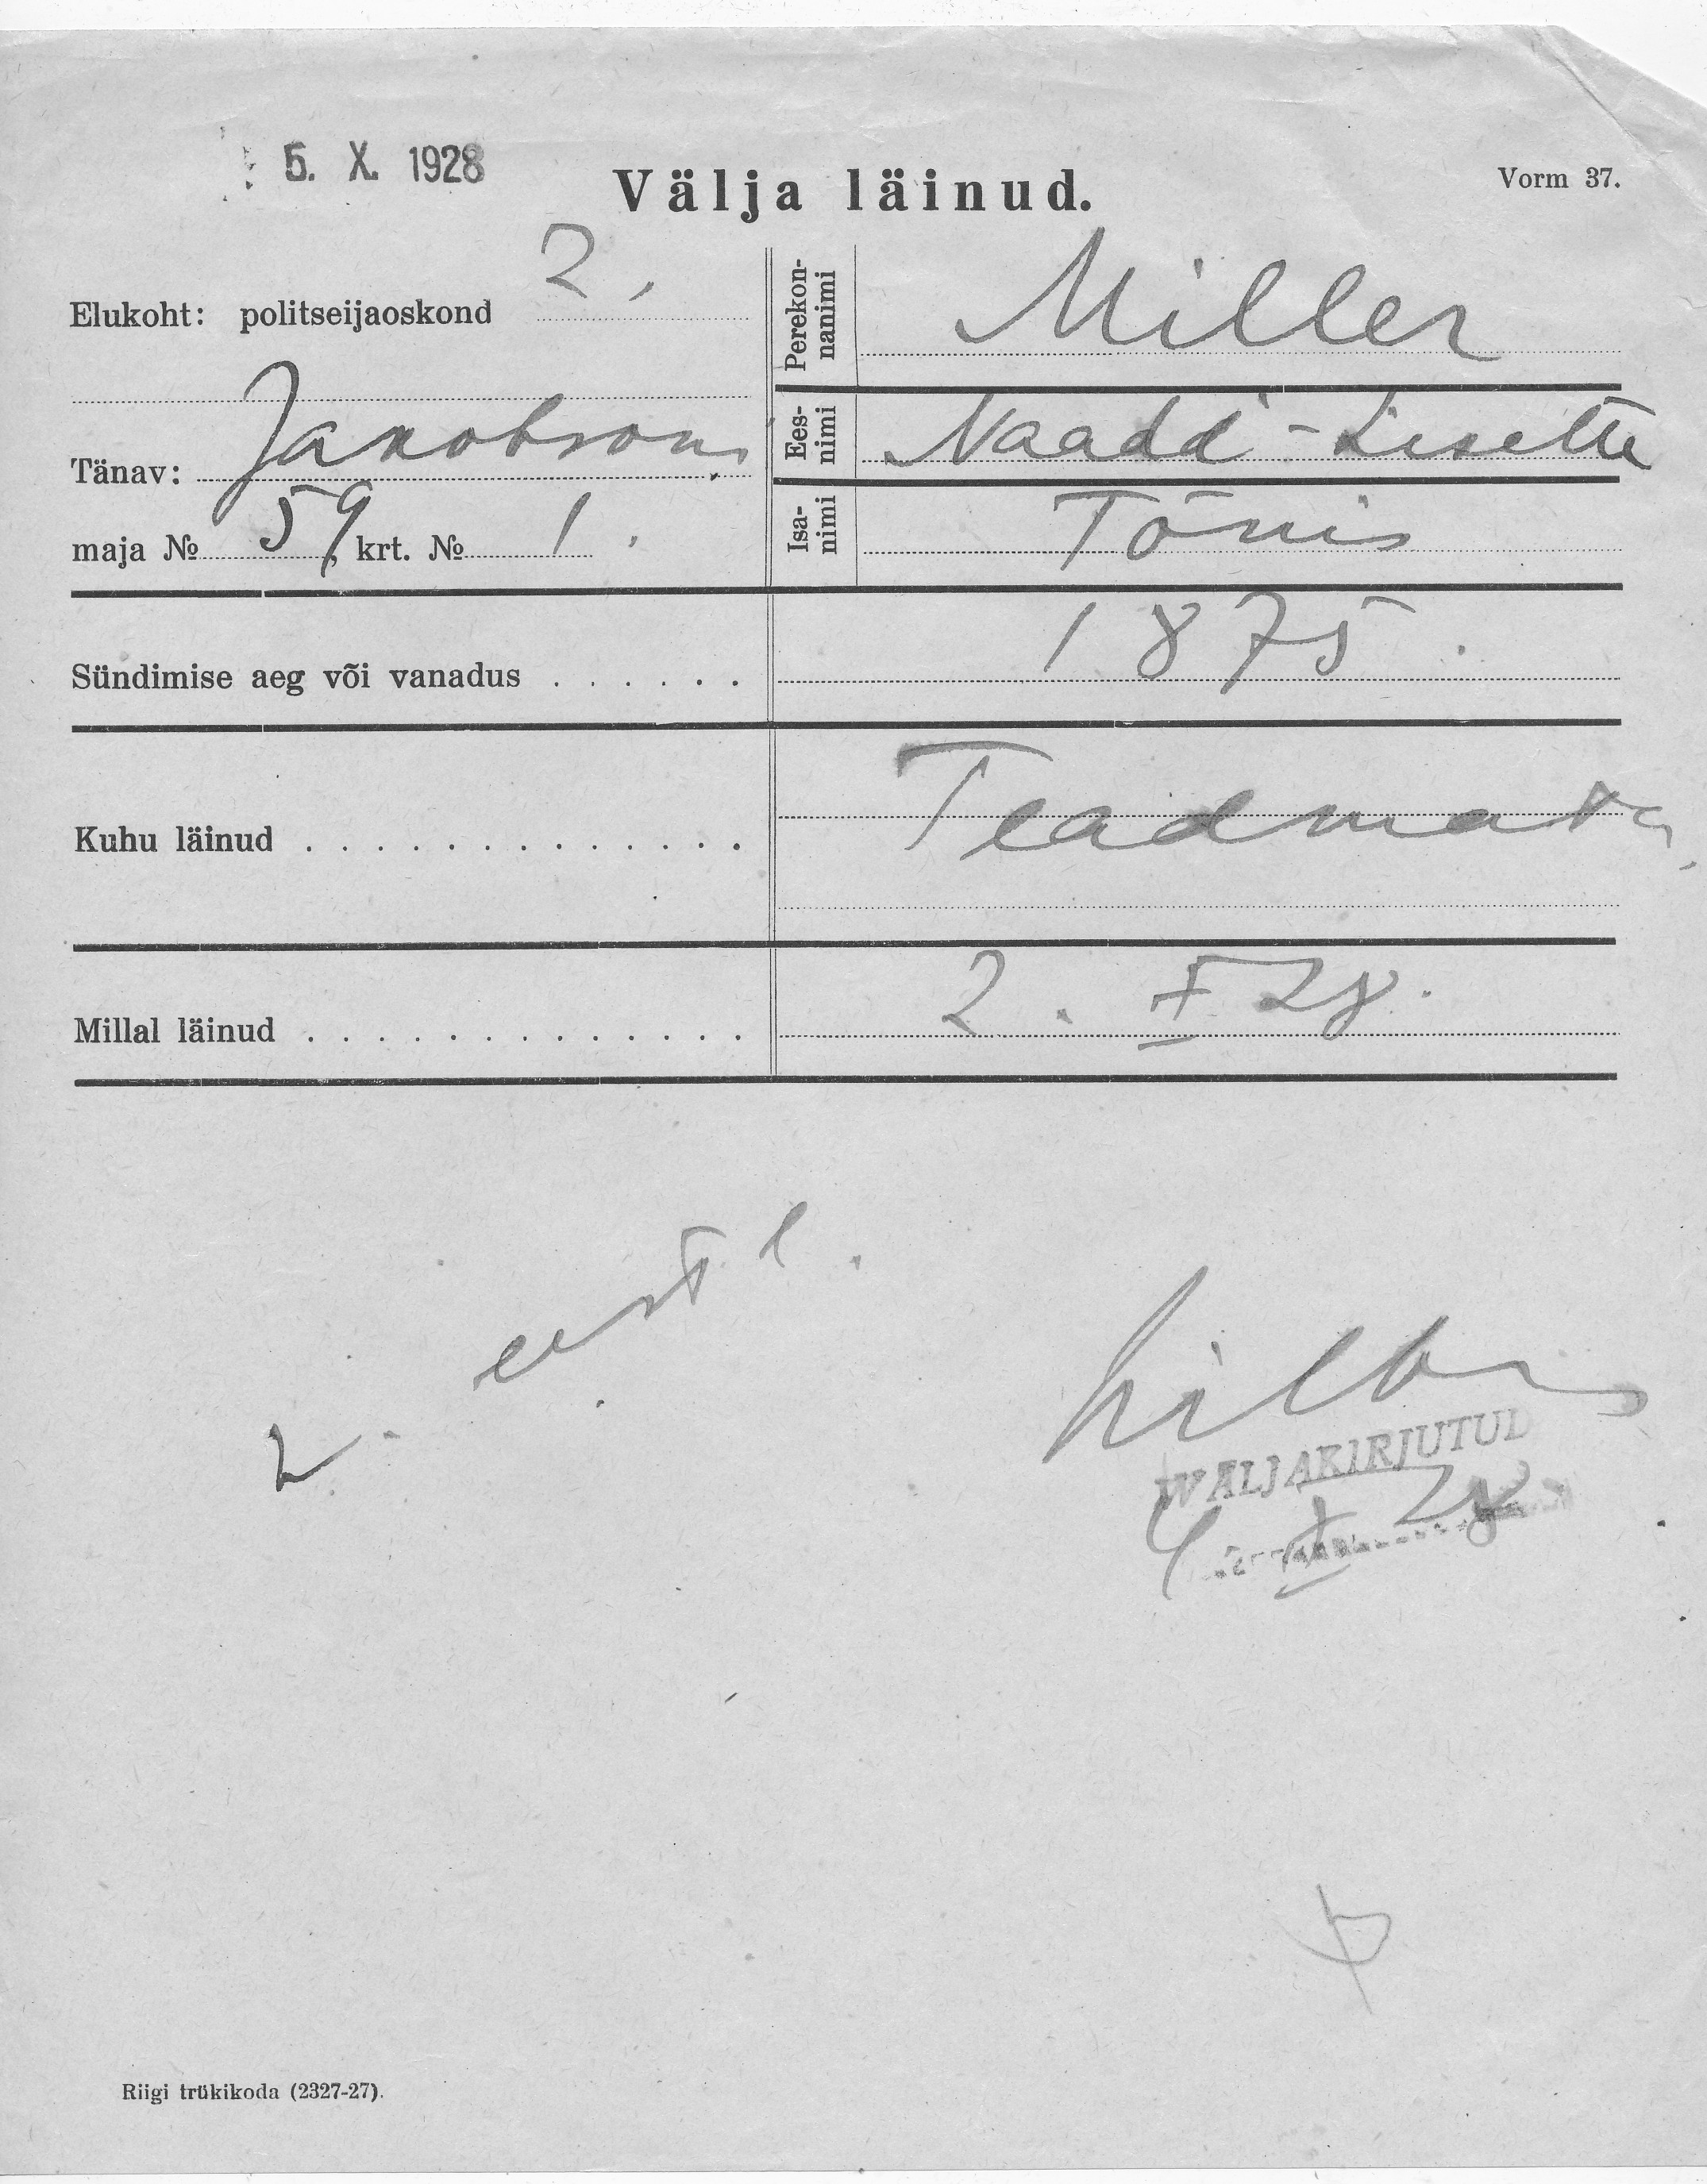 5. X. 1928
Välja läinud.
Vorm 37.
Elukoht: politseijaoskond 2.
Tänav: Jakobsoni
maja № 59, krt. № 1.
Perekonnanimi Miller
Eesnimi Naadi-Lisette
Isanimi Tõnis
Sündimise aeg või vanadus . . . . . . 1875.
Kuhu läinud . . . . . . . . . . . . . Teadmata.
Millal läinud . . . . . . . . . . . . . 2. X 28.
WÄLJAKIRJUTUD
4 X 28
Riigi trükikoda (2327-27).